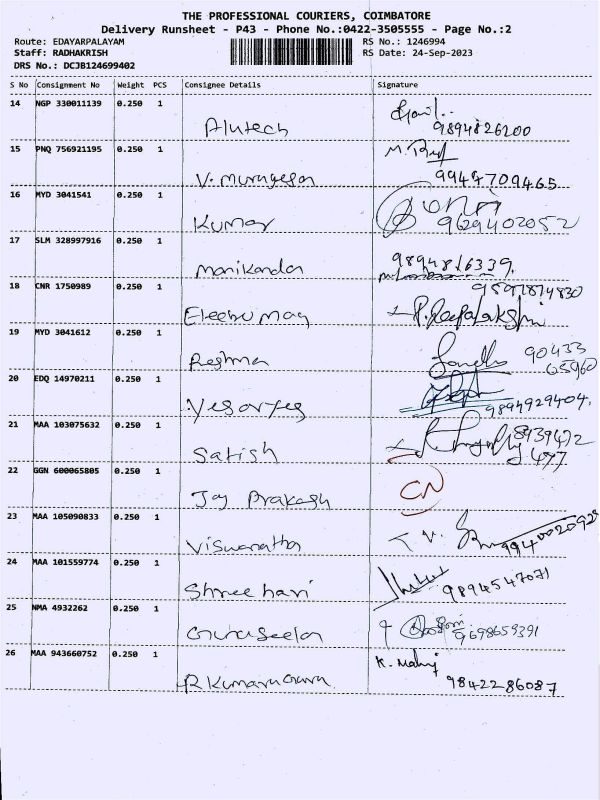 THE PROFESSIONAL COURIERS, COIMBATORE
Delivery Runsheet - P43 - Phone No.:0422-3505555 - Page No.:2
Route: EDAYARPALAYAM RS No.: 1246994
Staff: RADHAKRISH RS Date: 24-Sep-2023
DRS No.: DCJB124699402
S No Consignment No Weight PCS Consignee Details Signature
14 NGP 330011139 0.250 1
Alutech 9894826200
15 PNQ 756921195 0.250 1
V. Murugesan 9947709465
16 MYD 3041541 0.250 1
Kumar 9629402052
17 SLM 328997916 0.250 1
manikandan 9894816339
18 CNR 1750989 0.250 1
P. Deepalakshmi
19 MYD 3041612 0.250 1
Reshma 90433
65960
20 EDQ 14970211 0.250 1
9894929404
21 MAA 103075632 0.250 1
Satish 8939472
477
22 GGN 600065805 0.250 1
Jay Prakash CN
23 MAA 105090833 0.250 1
Viswanatha
24 MAA 101559774 0.250 1
Shree hari 9894547071
25 NMA 4932262 0.250 1
Gunaseelan 9698659391
26 MAA 943660752 0.250 1
R Kumaraguru 9842286087